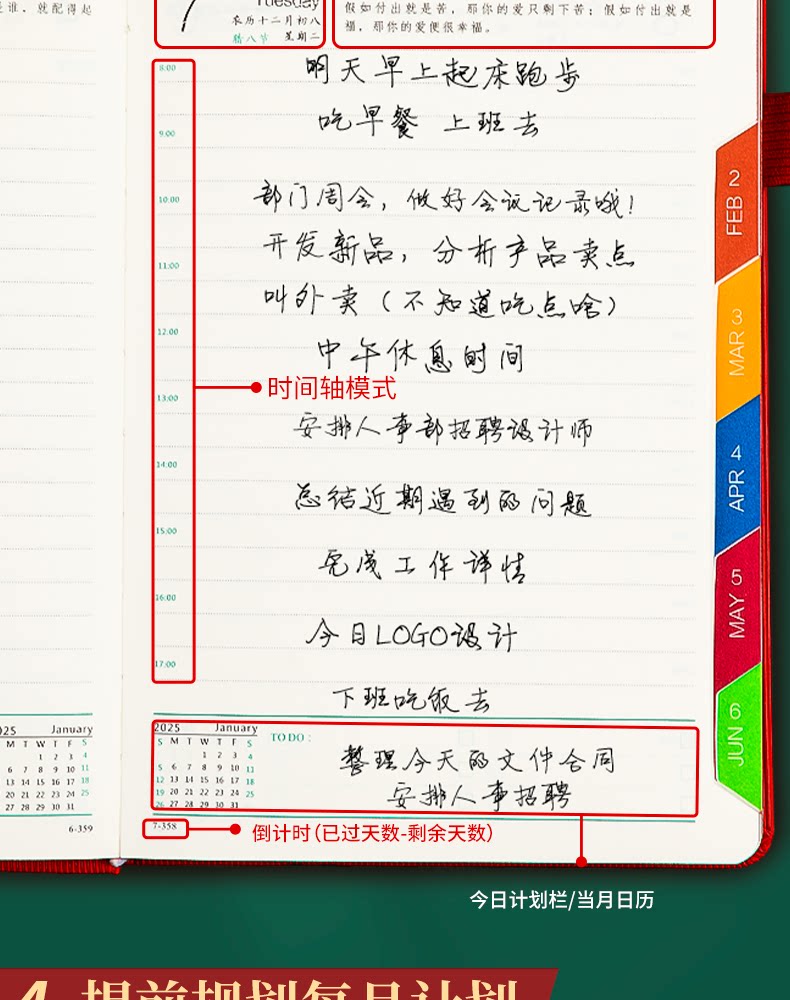 是谁，就配得起
7
Tuesday
农历十二月初八
腊八节 星期二
假如付出就是苦，那你的爱只剩下苦；假如付出就是
福，那你的爱便很幸福。
8:00
明天早上起床跑步
吃早餐 上班去
9:00
10:00
部门周会，做好会议记录哦！
开发新品，分析产品卖点
11:00
叫外卖（不知道吃点啥）
12:00
中午休息时间
时间轴模式
13:00
安排人事部招聘设计师
14:00
总结近期遇到的问题
15:00
完成工作详情
16:00
今日LOGO设计
17:00
下班吃饭去
025 January
M T W T F S
1 2 3 4
6 7 8 9 10 11
13 14 15 16 17 18
20 21 22 23 24 25
27 28 29 30 31
6-359
2025 January
S M T W T F S
1 2 3 4
5 6 7 8 9 10 11
12 13 14 15 16 17 18
19 20 21 22 23 24 25
26 27 28 29 30 31
TO DO :
整理今天的文件合同
安排人事招聘
7-358
倒计时（已过天数-剩余天数）
今日计划栏/当月日历
FEB 2
MAR 3
APR 4
MAY 5
JUN 6
4 提前规划每月计划